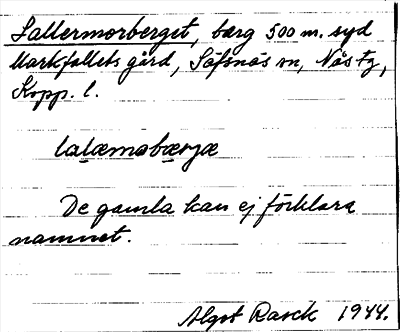 Lallermorberget, bærg 500 m. syd
Markfallets gård, Säfsnäs sn, Nås tg,
Kopp. l.
lalæmobærjæ
De gamla kan ej förklara
namnet.
Algot Rarck 1944.